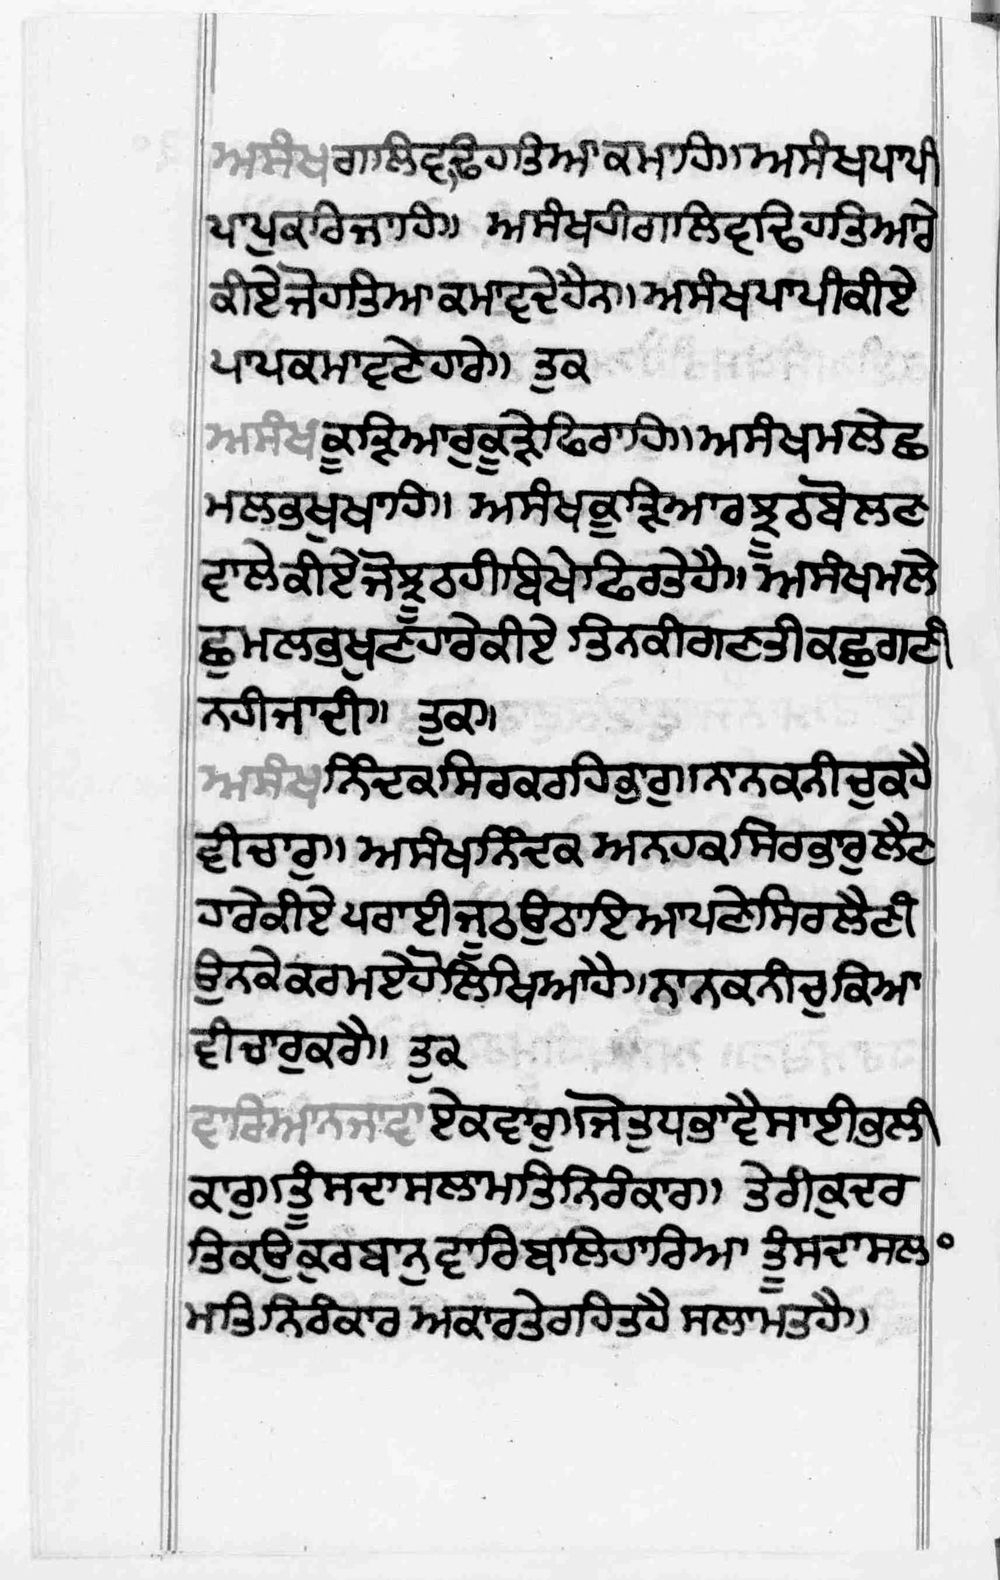 ਅਸੰਖ ਗਲਿ ਵਢਿ ਹਤਿਆ ਕਮਾਹਿ॥ ਅਸੰਖ ਪਾਪੀ
ਪਾਪੁ ਕਰਿ ਜਾਹਿ॥ ਅਸੰਖ ਹੀ ਗਲਿ ਵਢਿ ਹਤਿਆਰੇ
ਕੀਏ ਜੋ ਹਤਿਆ ਕਮਾਵਦੇ ਹੈਨ॥ ਅਸੰਖ ਪਾਪੀ ਕੀਏ
ਪਾਪ ਕਮਾਵਣੇਹਾਰੇ॥ ਤੁਕ
ਅਸੰਖ ਕੂੜਿਆਰੁ ਕੂੜੇ ਫਿਰਾਹਿ॥ ਅਸੰਖ ਮਲੇਛ
ਮਲੁ ਭਖੁ ਖਾਹਿ॥ ਅਸੰਖ ਕੂੜਿਆਰ ਝੂਠ ਬੋਲਣ
ਵਾਲੇ ਕੀਏ ਜੋ ਝੂਠ ਹੀ ਬਿਖੇ ਫਿਰਤੇ ਹੈ॥ ਅਸੰਖ ਮਲੇ
ਛੁ ਮਲ ਭਖੁਣਹਾਰੇ ਕੀਏ ਤਿਨ ਕੀ ਗਣਤੀ ਕਛੁ ਗਣੀ
ਨਹੀ ਜਾਦੀ॥ ਤੁਕ॥
ਅਸੰਖ ਨਿੰਦਕ ਸਿਰ ਕਰਹਿ ਭਾਰੁ॥ ਨਾਨਕ ਨੀਚੁ ਕਹੈ
ਵੀਚਾਰੁ॥ ਅਸੰਖ ਨਿੰਦਕ ਅਨਹਕ ਸਿਰ ਭਾਰੁ ਲੈਣ
ਹਾਰੇ ਕੀਏ ਪਰਾਈ ਜੂਠ ਉਠਾਇ ਆਪਣੇ ਸਿਰ ਲੈਣੀ
ਉਨ ਕੇ ਕਰਮ ਏਹੋ ਲਿਖਿਆ ਹੈ॥ ਨਾਨਕ ਨੀਚੁ ਕਿਆ
ਵੀਚਾਰੁ ਕਰੈ॥ ਤੁਕ
ਵਾਰਿਆ ਨ ਜਾਵਾ ਏਕ ਵਾਰੁ॥ ਜੋ ਤੁਧ ਭਾਵੈ ਸਾਈ ਭਲੀ
ਕਾਰੁ॥ ਤੂੰ ਸਦਾ ਸਲਾਮਤਿ ਨਿਰੰਕਾਰ॥ ਤੇਰੀ ਕੁਦਰ
ਤਿ ਕਉ ਕੁਰਬਾਨੁ ਵਾਰਿ ਬਲਿਹਾਰਿਆ ਤੂੰ ਸਦਾ ਸਲ॰
ਮਤਿ ਨਿਰੰਕਾਰ ਅਕਾਰ ਤੇ ਰਹਿਤ ਹੈ ਸਲਾਮਤ ਹੈ॥